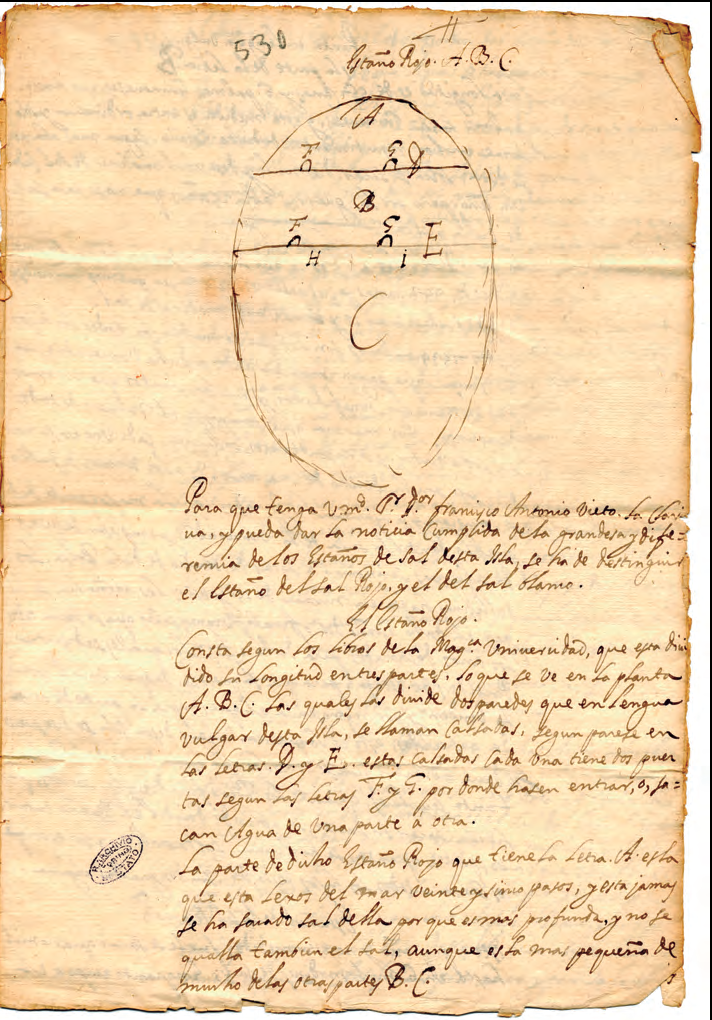 530
Estaño Rojo. A. B. C.
A
F G D
B
F G E
H I
C
Para que tenga Vmd. Sr Dor francisco Antonio Vieto. la Clari
cia, y pueda dar la noticia Cumplida de la grandesa y dife=
rencia de los Estaños de Sal desta Isla, se ha de destinguir
el Estaño del Sal Rojo, y el del sal blanco.
El Estaño Rojo.
Consta segun los libros de la Magca Univercidad, que esta divi
dido su Longitud entres partes, lo que se ve en la planta
A. B. C. las quales las divide dos paredes que en Lengua
vulgar desta Isla, se llaman Calsadas, segun parese en
las letras. D. y E. estas Calsadas Cada Una tiene dos puer
tas segun las letras F. y G. por donde hasen entrar, o, sa=
can Agua de Una parte á otra.
La parte de dicho Estaño Rojo que tiene la letra. A. es la
que esta lexos del mar veinte y sinco pasos, y esta jamas
se ha sacado sal della por que es mas profunda, y no se
qualla tambien el sal, aunque es la mas pequeña de
mucho de las otras partes B. C.
ARCHIVIO
STATO